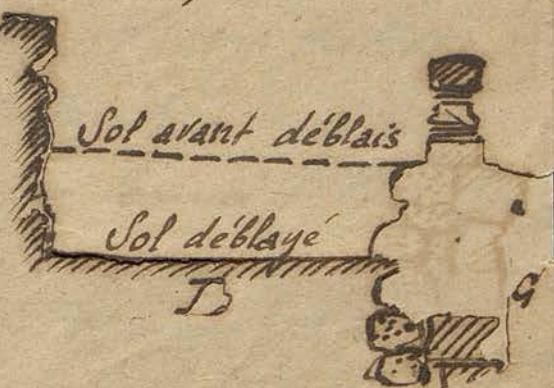 Sol avant déblais
Sol déblayé
B
G